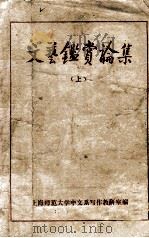 文艺鑑賞論集
(上)
上海师范大学中文系写作教研室编